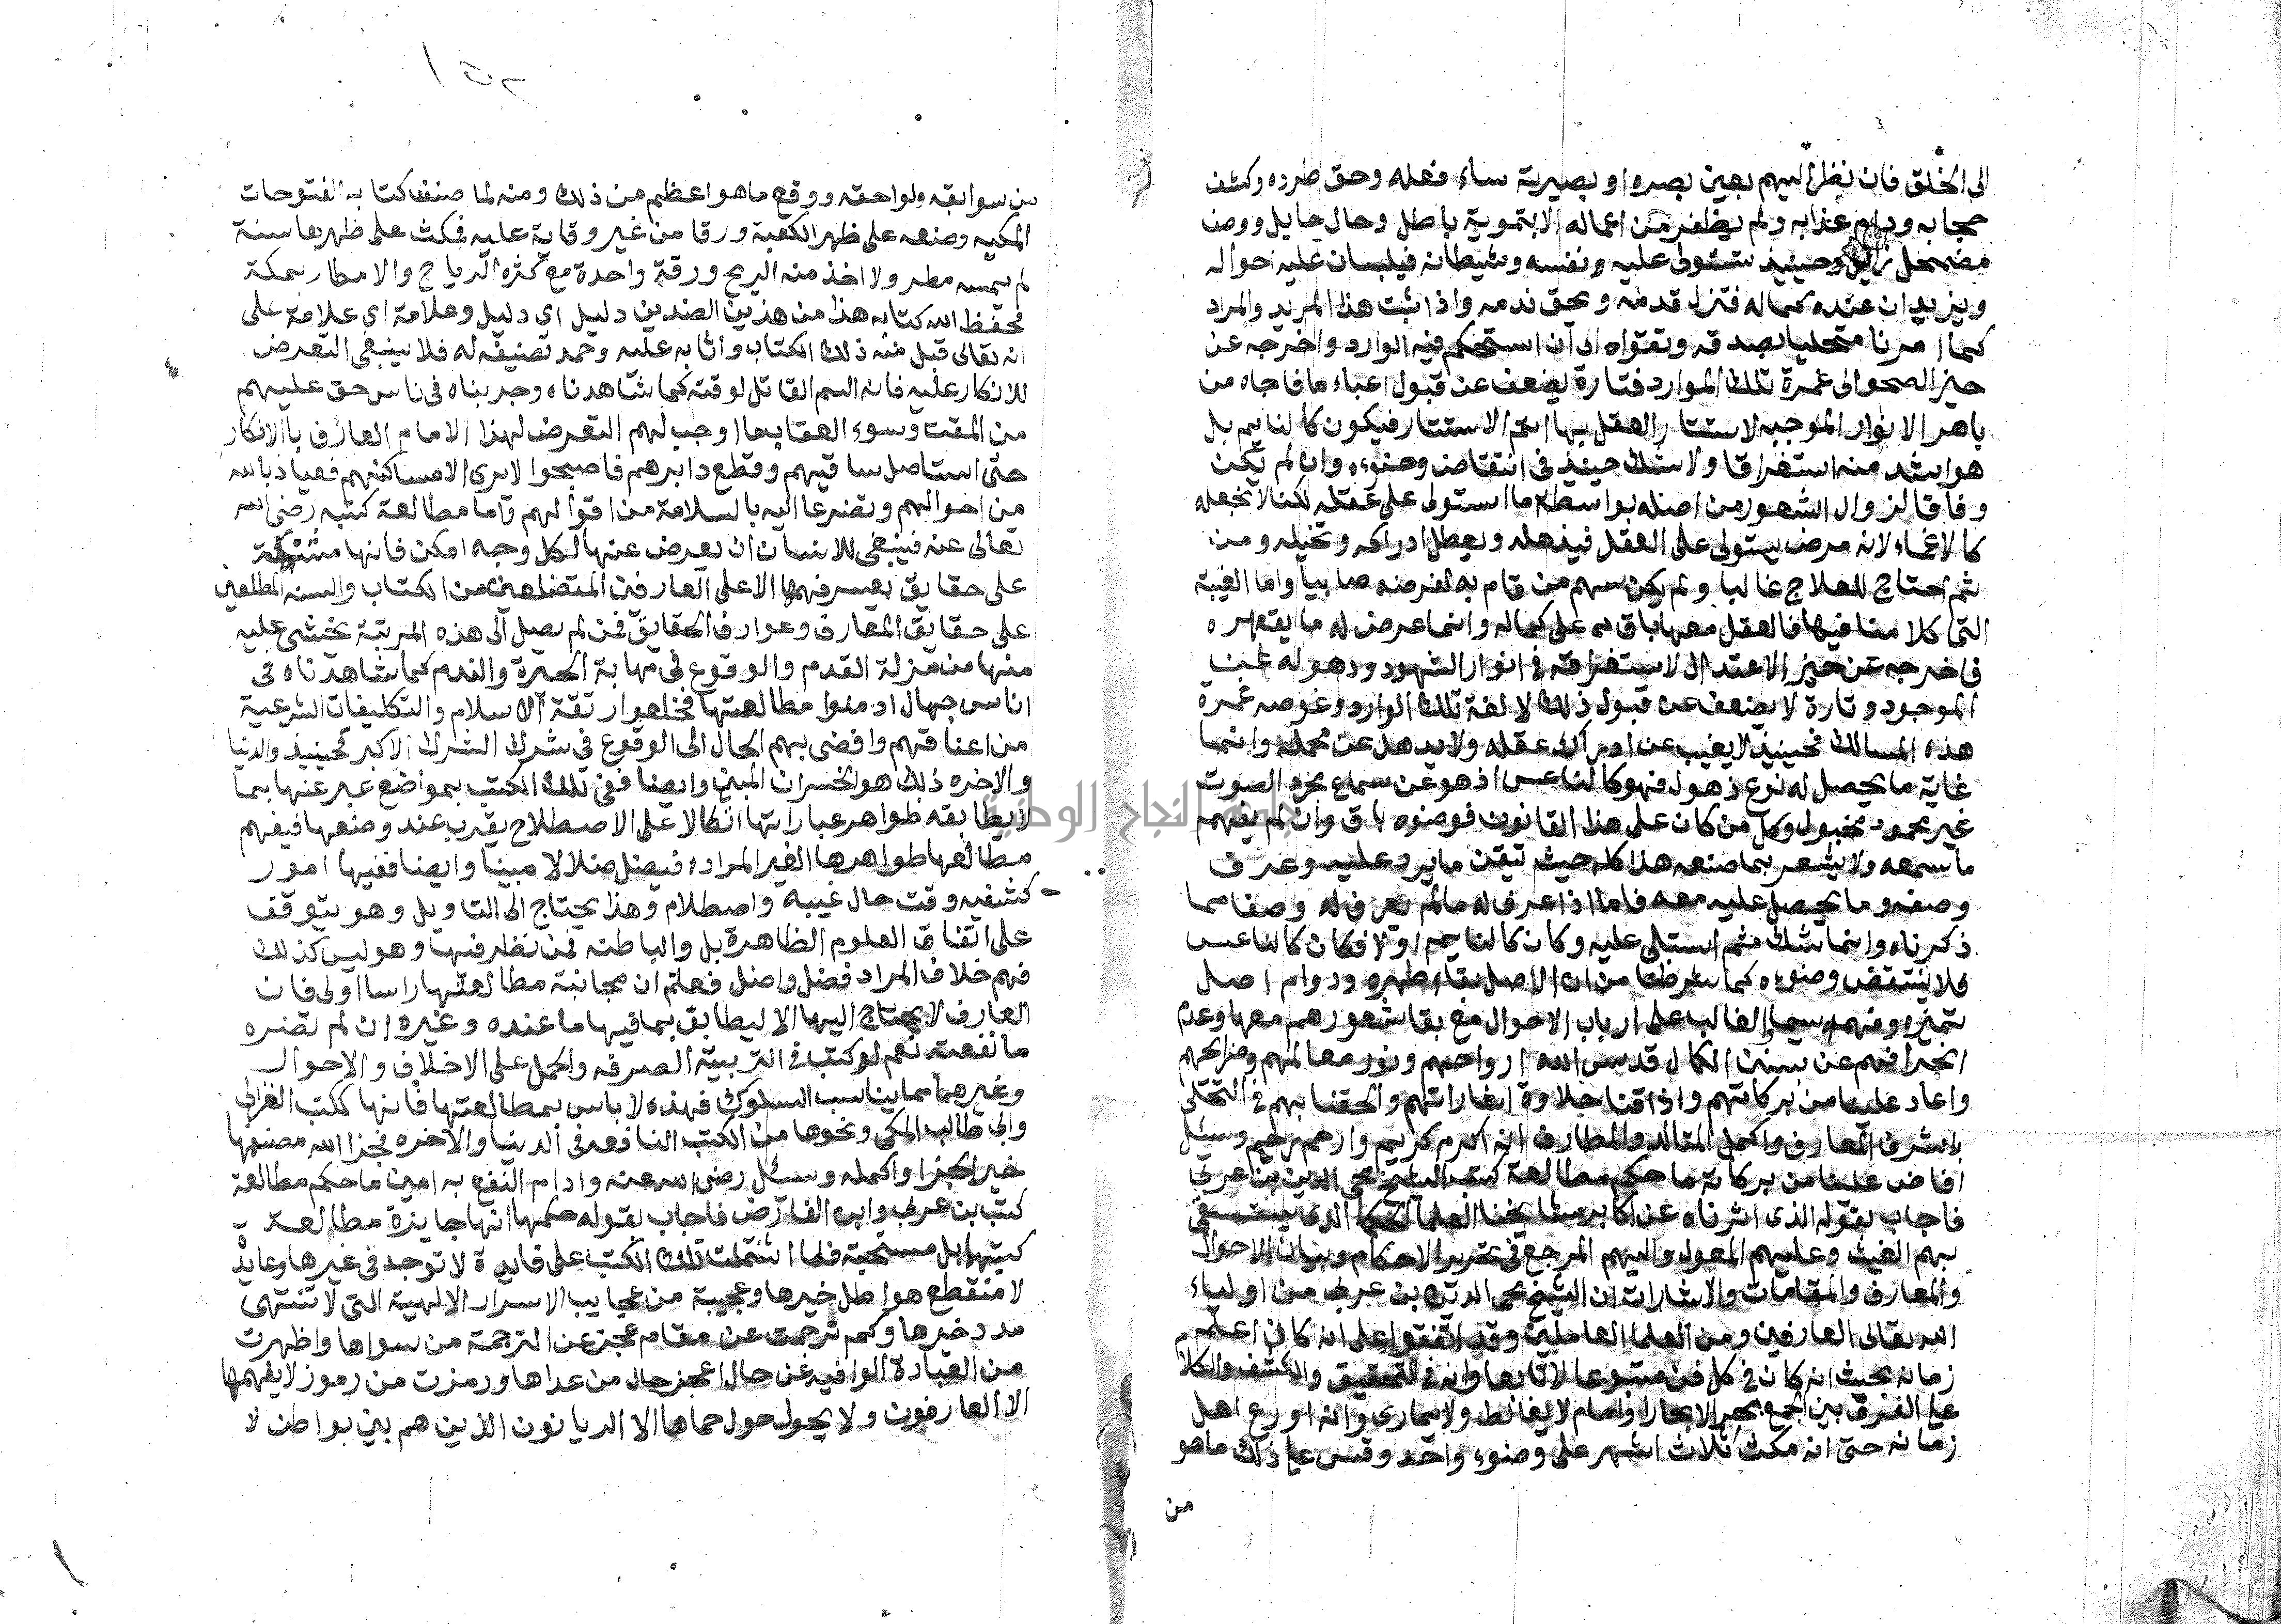 الى الخلق فان نظر اليهم بعين بصره او بصيرته ساء فعله وحق طرده وكشف
حجابه ودام عذابه ولم يظفر من اعماله الا بتموية باطل وحال حايل ووصف
مضمحل زايل وحينيذ تستولى عليه ونفسه وشيطانه فيلبسان عليه حواله
ويزيدان عنده كماله فتزل قدمه ويحق ندمه واذا ثبت هذا المريد والمراد
كما امرنا متحليا بصدقه وتقواه الى آن استحكم فيه الوارد واخرجه عن
حيز الصحو الى غمرة تلك الموارد فتارة يضعف عن قبول اعباء ما فاجاه من
باهر الانوار الموجبة لاستتار العقل بها اتم الاستتار فيكون كالنايم بل
هو اشد منه استغراقا ولا شك حينيذ في انتقاض وضوءه وان لم يكن
وفاقا لزوال الشعور من اصله بواسطة ما استولى على عقله لكنا لا نجعله
كالاغماء لانه مرض يستولى على العقل فيذهله ويعطل ادراكه وتخيله ومن
ثم احتاج للعلاج غالبا ولم يكن سهم من قام به لغرضه صايبا واما الغيبة
التى كلامنا فيها فالعقل معها باق على كماله وانما عرض له ما يقهره
فاخرجه عن حيز الاعتدال لاستغراقه في انوار الشهود وذهوله عن
الموجود وتارة لا يضعف عن قبول ذلك لالفة تلك الوارد وغوصه غمرة
هذه المسالك فحينيذ لا يغيب عن ادراك عقله ولا يذهل عن محمله وانما
غاية ما يحصل له نوع ذهول فهو كالناعس اذ هو عن سماع مجرد الصوت
غير محمود مخبول وكل من كان على هذا القانون فوضوه باق وان لم يفهم
ما سمعه ولا يشعر بما صنعه هذا كله حيث تيقن ما يرد عليه وعرف
وصفه وما يحصل عليه معه فاما اذا عرف له مالم يعرف له وصفا مما
ذكرناه وانما شك ثم استلى عليه وكان كالنايم اولا فكان كالناعس
فلا ينتقض وضوءه كما شرطنا من ان الاصل بقاء طهره ودوام اصل
تميزه وفهمه سيما والغالب على ارباب الاحوال مع بقا شعورهم معها وعدم
انحرافهم عن سنن الكمال قدس الله ارواحهم ونور معالمهم وضرايحهم
واعاد علينا من بركاتهم واذاقنا حلاوة اشاراتهم والحقنا بهم في التحلى
باشرف المعارف واكمل المتالد والمطارف انه اكرم كريم وارحم رحيم وسيل
افاض علينا من بركاته ما حكم مطالعة كتب الشيخ محى الدين بن عربي
فاجاب بقوله الذى اثرناه عن اكابر مشايخنا العلما الحكما الذى يستسقى
بهم الغيث وعليهم المعول واليهم المرجع في تحرير الاحكام وبيان الاحوال
والمعارف والمقامات والاشارات ان الشيخ محى الدين بن عربي من اولياء
الله تعالى العارفين ومن العلما العاملين وقد اتفقوا على انه كان اعلم
زمانه بحيث انه كان في كل فن متبوعا لا تابعا وانه في التحقيق والكشف والكلام
على الفرق بين الجمع بحر لا يجارا وامام لا يغالط ولا يمارى وانه اورع اهل
زمانه حتى انه مكث ثلاث اشهر على وضوء واحد وقس على ذلك ما هو
من
من سوابقه ولواحقه ووقع ما هو اعظم من ذلك ومنه لما صنف كتابه الفتوحات
المكيه وضعه على ظهر الكعبة ورقا من غير وقاية عليه فمكث على ظهرها سنة
لم يمسه مطر ولا اخذ منه الريح ورقة واحدة مع كثره الرياح والامطار بمكة
فحفظ الله كتابه هذا من هذين الضدين دليل اي دليل وعلامة اي علامة على
انه تعالى قبل منه ذلك الكتاب واثابه عليه وحمد تصنيفه له فلا ينبغى التعرض
للانكار عليه فانه السم القاتل لوقته كما شاهدناه وجربناه في ناس حق عليهم
من المقت وسوء العقاب ما اوجب لهم التعرض لهذا الامام العارف بالانكار
حتى استاصل ساقيهم وقطع دابرهم فاصبحوا لا يرى الا مساكنهم فعياذ بالله
من احوالهم وتضرعا اليه بالسلامة من اقوالهم واما مطالعة كتبه رضى الله
تعالى عنه فينبغى للانسان ان يعرض عنها لكل وجه امكن فانها مشتملة
على حقايق يعسر فهمها الا على العارفين المتضلعين من الكتاب والسنه المطلعين
على حقايق المعارف وعوارف الحقايق فمن لم يصل الى هذه المرتبة يخشى عليه
منها من مزلة القدم والوقوع في مهابة الحيرة والندم كما شاهدناه في
اناس جهال ادمنوا مطالعتها فخلعوا ربقة الاسلام والتكليفات الشرعية
من اعناقهم وافضى بهم الحال الى الوقوع في شرك الشرك الاكبر فحينيذ والدنيا
والاخره ذلك هو الخسران المبين وايضا ففى تلك الكتب بمواضع عبر عنها بما
لا يطابقه ظواهر عباراتها اتكالا على الاصطلاح يقرب عند وضعها فيفهم
مطالعها ظواهرها الغير المراده فيضل ضلالا مبينا وايضا ففيها امور
كشفيه وقت حال غيبه واصطلام وهذا يحتاج الى التاويل وهو يتوقف
على اتقاق العلوم الظاهرة بل والباطنه فمن نظر فيها وهو ليس كذلك
فهم خلاف المراد فضل واضل فعلم ان مجانبة مطالعتها راسا اولى فان
العارف لا يحتاج اليها الا ليطابق بما فيها ما عنده وغيره ان لم تضره
ما نفعته نعم لو كتب في التربية الصرفه والحمل على الاخلاق والاحوال
وغيرهما مما يناسب السلوك فهذه لا باس بمطالعتها فانها ككتب الغزالى
وابى طالب المكى ونحوها من الكتب النافعه في الدنيا والاخره فجزا الله مصنفها
خير الجزا واكمله وسئل رضى الله عنه وادام النفع به امين ما حكم مطالعة
كتب بن عربي وابن الفارض فاجاب بقوله حكمها انها جايزة مطالعة
كتبهما بل مستحبة فلما اشتملت تلك الكتب على فايدة لا توجد في غيرها وعايدة
لا منقطع هواطل خيرها وعجيبة من عجايب الاسرار الالهية التى لا تنتهى
مدد خيرها وكم ترجمت عن مقام عجز عن الترجمة من سواها واظهرت
من العبارة الوافيه عن حال اعجز حال من عداها ورمزت من رموز لا يفهمها
الا العارفون ولا يحول حول حماها الا الديانون الذين هم بين بواطن لا